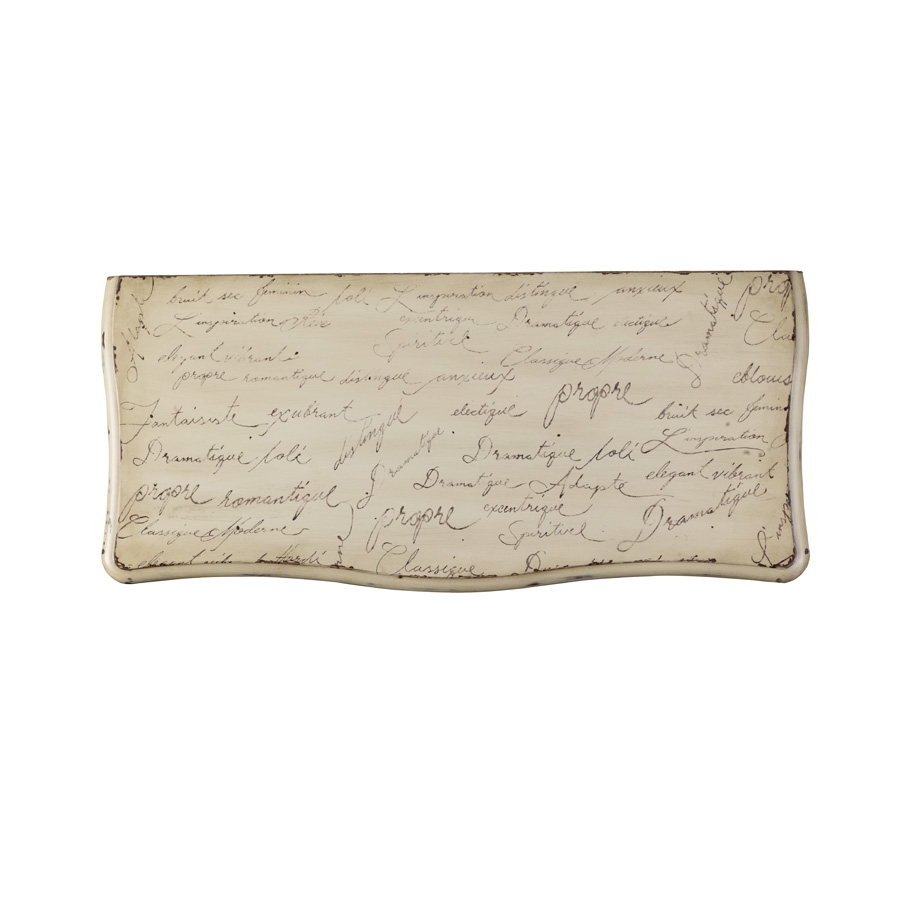 bruit sec feminin joli L'inspiration distingue anxieux
pro
L'inspiration
excentrique Dramatique electique
Dramatique
Cla
Spirituel
elegant vibrant
Classique Moderne
propre romantique distingue anxieux
eblouis
Fantaisiste exubrant
distingue
electique propre
bruit sec feminin
Dramatique joli
Dramatique
Dramatique joli
L'inspiration
propre romantique
Dramatique Adapte
elegant vibrant
propre
excentrique
Dramatique
Classique Moderne
Spirituel
L'insp
Hardi
Classique